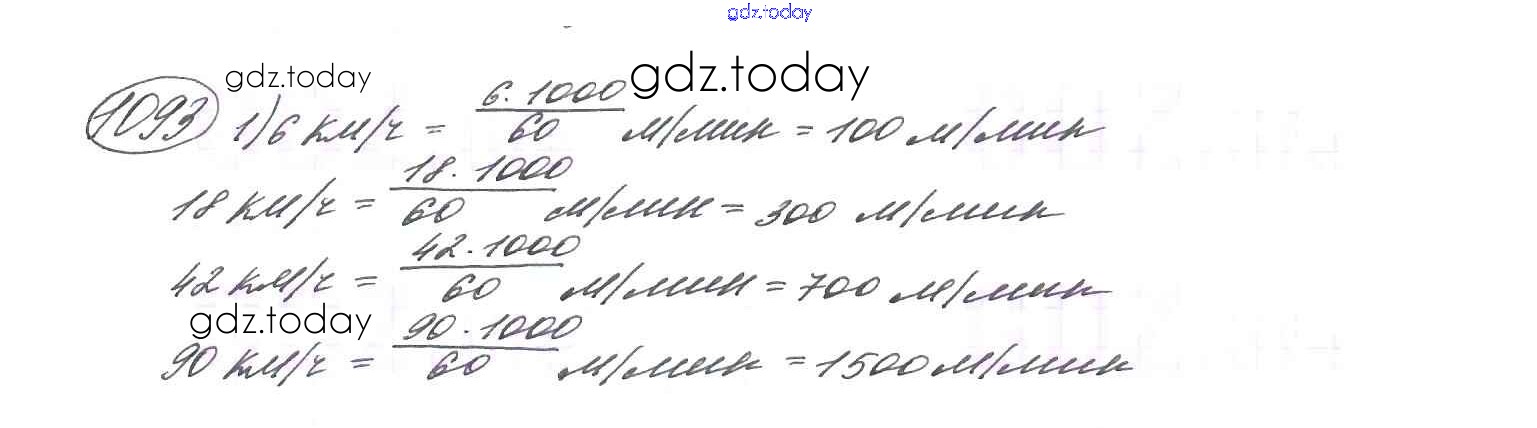 gdz.today
gdz.today gdz.today
1093 1) 6 км/ч = 6·1000/60 м/мин = 100 м/мин
18 км/ч = 18·1000/60 м/мин = 300 м/мин
42 км/ч = 42·1000/60 м/мин = 700 м/мин
gdz.today
90 км/ч = 90·1000/60 м/мин = 1500 м/мин